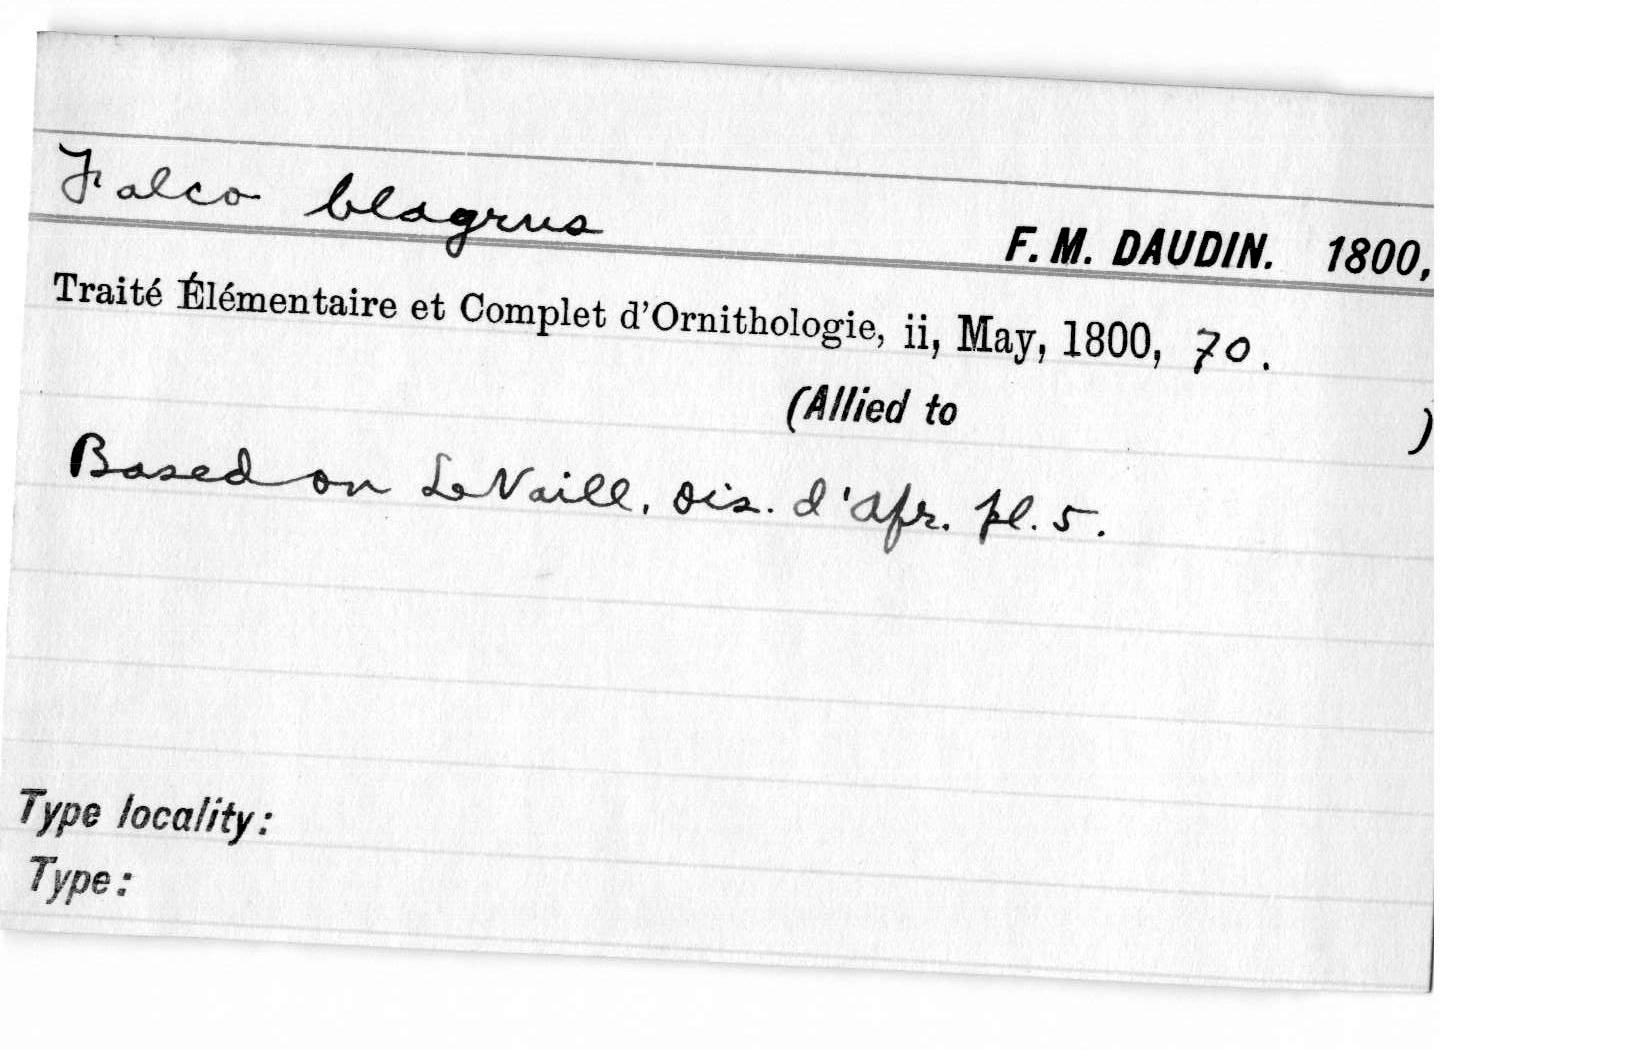 Falco blagrus
F. M. DAUDIN. 1800,
Traité Élémentaire et Complet d'Ornithologie, ii, May, 1800, 70.
(Allied to )
Based on LeVaill. Ois. d'Afr. pl. 5.
Type locality:
Type: